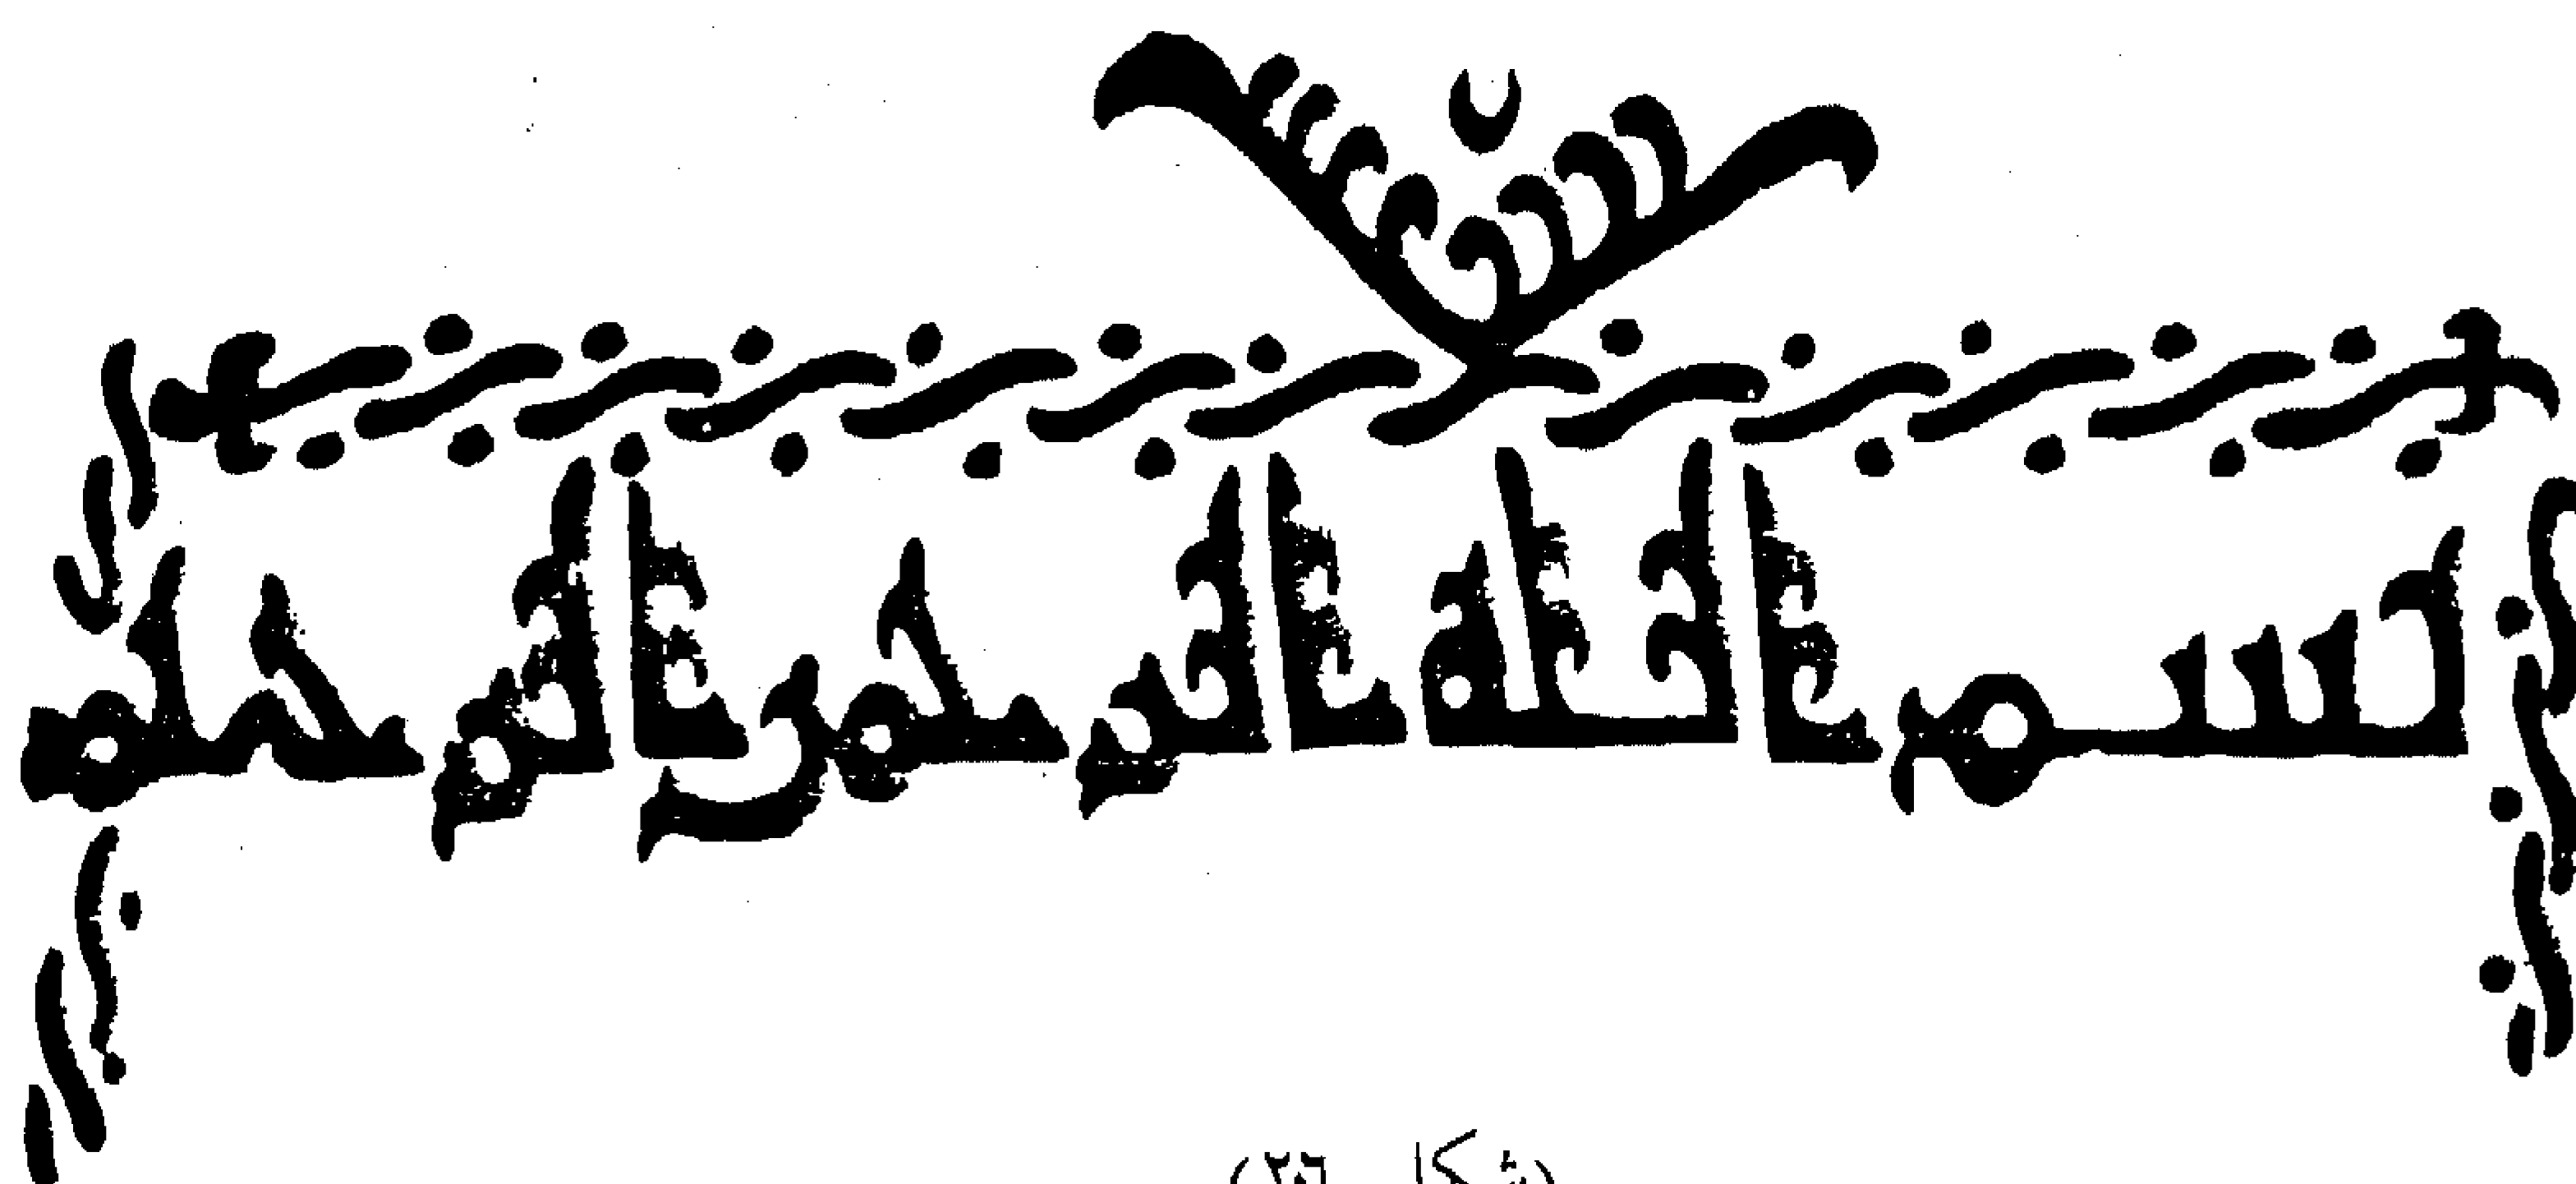 بسم الله الرحمن الرحيم
(شكل